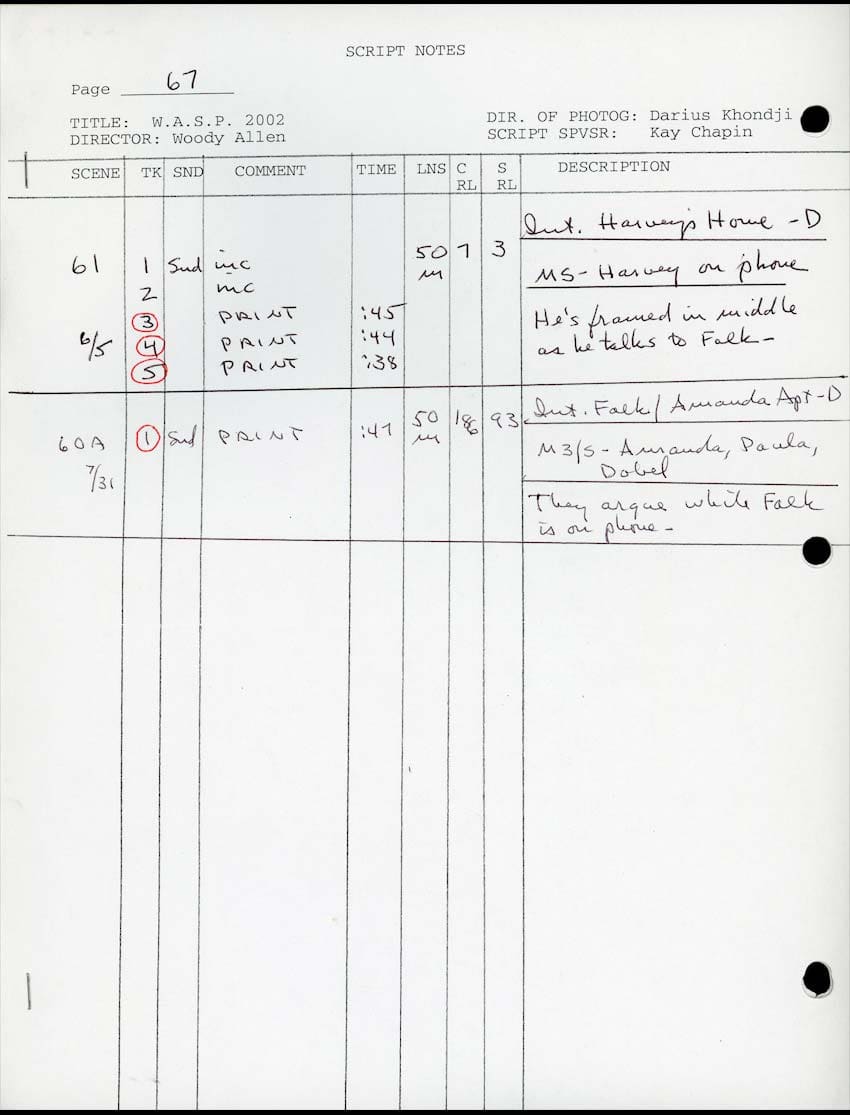 SCRIPT NOTES
Page 67
TITLE: W.A.S.P. 2002
DIR. OF PHOTOG: Darius Khondji
DIRECTOR: Woody Allen
SCRIPT SPVSR: Kay Chapin
SCENE TK SND COMMENT TIME LNS C RL S RL DESCRIPTION
Int. Harvey's Home - D
61 1 Snd inc 50 m 7 3 MS - Harvey on phone
2 inc
3 PRINT :45 He's framed in middle
6/5 4 PRINT :44 as he talks to Falk -
5 PRINT :38
Int. Falk/Amanda Apt - D
60A 1 Snd PRINT :47 50 m 93 M3/S - Amanda, Paula,
7/31 Dobel
They argue while Falk
is on phone -